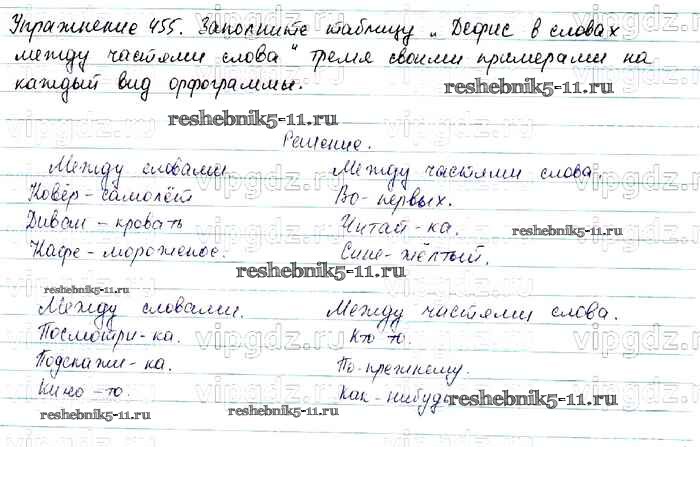 Упражнение 455. Заполните таблицу „Дефис в словах
между частями слова" тремя своими примерами на
каждый вид орфограммы.
reshebnik5-11.ru
reshebnik5-11.ru
Решение.
Между словами Между частями слова.
Ковёр-самолёт Во-первых.
Диван-кровать Читай-ка.
reshebnik5-11.ru
Кафе-мороженое. Сине-жёлтый.
reshebnik5-11.ru
reshebnik5-11.ru
Между словами. Между частями слова.
Посмотри-ка. Кто то.
Подскажи-ка. По-прежнему.
Кино-то. Как-нибудь
reshebnik5-11.ru
reshebnik5-11.ru
reshebnik5-11.ru
vipgdz.ru